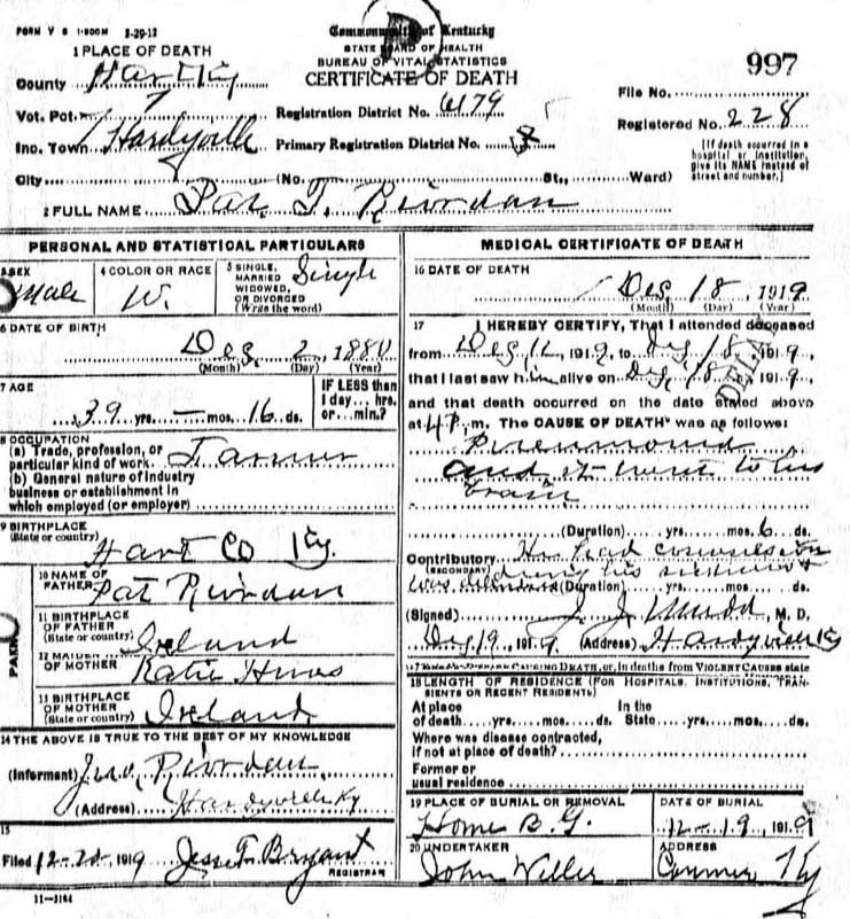 FORM V S 1-500M 3-29-12
Commonwealth of Kentucky
STATE BOARD OF HEALTH
BUREAU OF VITAL STATISTICS
CERTIFICATE OF DEATH
1 PLACE OF DEATH
County Hart Ky
Vot. Pct. 7
Inc. Town Hardyville
City
Registration District No. 6179
Primary Registration District No.
(No. St., Ward)
997
File No.
Registered No. 228
[If death occurred in a
hospital or institution,
give its NAME instead of
street and number.]
2 FULL NAME Pat. T. Riordan
PERSONAL AND STATISTICAL PARTICULARS
3 SEX
Male
4 COLOR OR RACE
W.
5 SINGLE,
MARRIED
WIDOWED,
OR DIVORCED
(Write the word)
Single
6 DATE OF BIRTH
Dec, 2, 1880
(Month) (Day) (Year)
7 AGE
39 yrs. — mos. 16 ds.
IF LESS than
1 day... hrs.
or...min.?
8 OCCUPATION
(a) Trade, profession, or
particular kind of work Farmer
(b) General nature of industry
business or establishment in
which employed (or employer)
9 BIRTHPLACE
(State or country)
Hart Co Ky.
10 NAME OF
FATHER Pat Riordan
11 BIRTHPLACE
OF FATHER
(State or country) Ireland
12 MAIDEN
OF MOTHER Katie
13 BIRTHPLACE
OF MOTHER
(State or country) Ireland
14 THE ABOVE IS TRUE TO THE BEST OF MY KNOWLEDGE
(Informant) Jno. Riordan
(Address) Hardyville Ky
15
Filed 12-20-1919 Jesse T. Bryant
REGISTRAR
11—3184
MEDICAL CERTIFICATE OF DEATH
16 DATE OF DEATH
Dec, 18, 1919
(Month) (Day) (Year)
17 I HEREBY CERTIFY, That I attended deceased
from Dec, 12, 1919, to Dec, 18, 1919,
that I last saw him alive on Dec, 18, 1919,
and that death occurred on the date stated above
at 4 P. m. The CAUSE OF DEATH* was as follows:
Pneumonia
and it went to his
brain
(Duration) yrs. mos. 6 ds.
Contributory He had convulsions
(SECONDARY)
was during his sickness
(Duration) yrs. mos. ds.
(Signed) J. J. Mudd, M. D.
Dec 19, 1919 (Address) Hardyville Ky
CAUSING DEATH, or, in deaths from VIOLENT CAUSES state
18 LENGTH OF RESIDENCE (FOR HOSPITALS, INSTITUTIONS, TRAN-
SIENTS OR RECENT RESIDENTS)
At place In the
of death yrs. mos. ds. State yrs. mos. ds.
Where was disease contracted,
if not at place of death?
Former or
usual residence
19 PLACE OF BURIAL OR REMOVAL
Home B. G.
DATE OF BURIAL
12-19, 1919
20 UNDERTAKER
John
ADDRESS
Ky